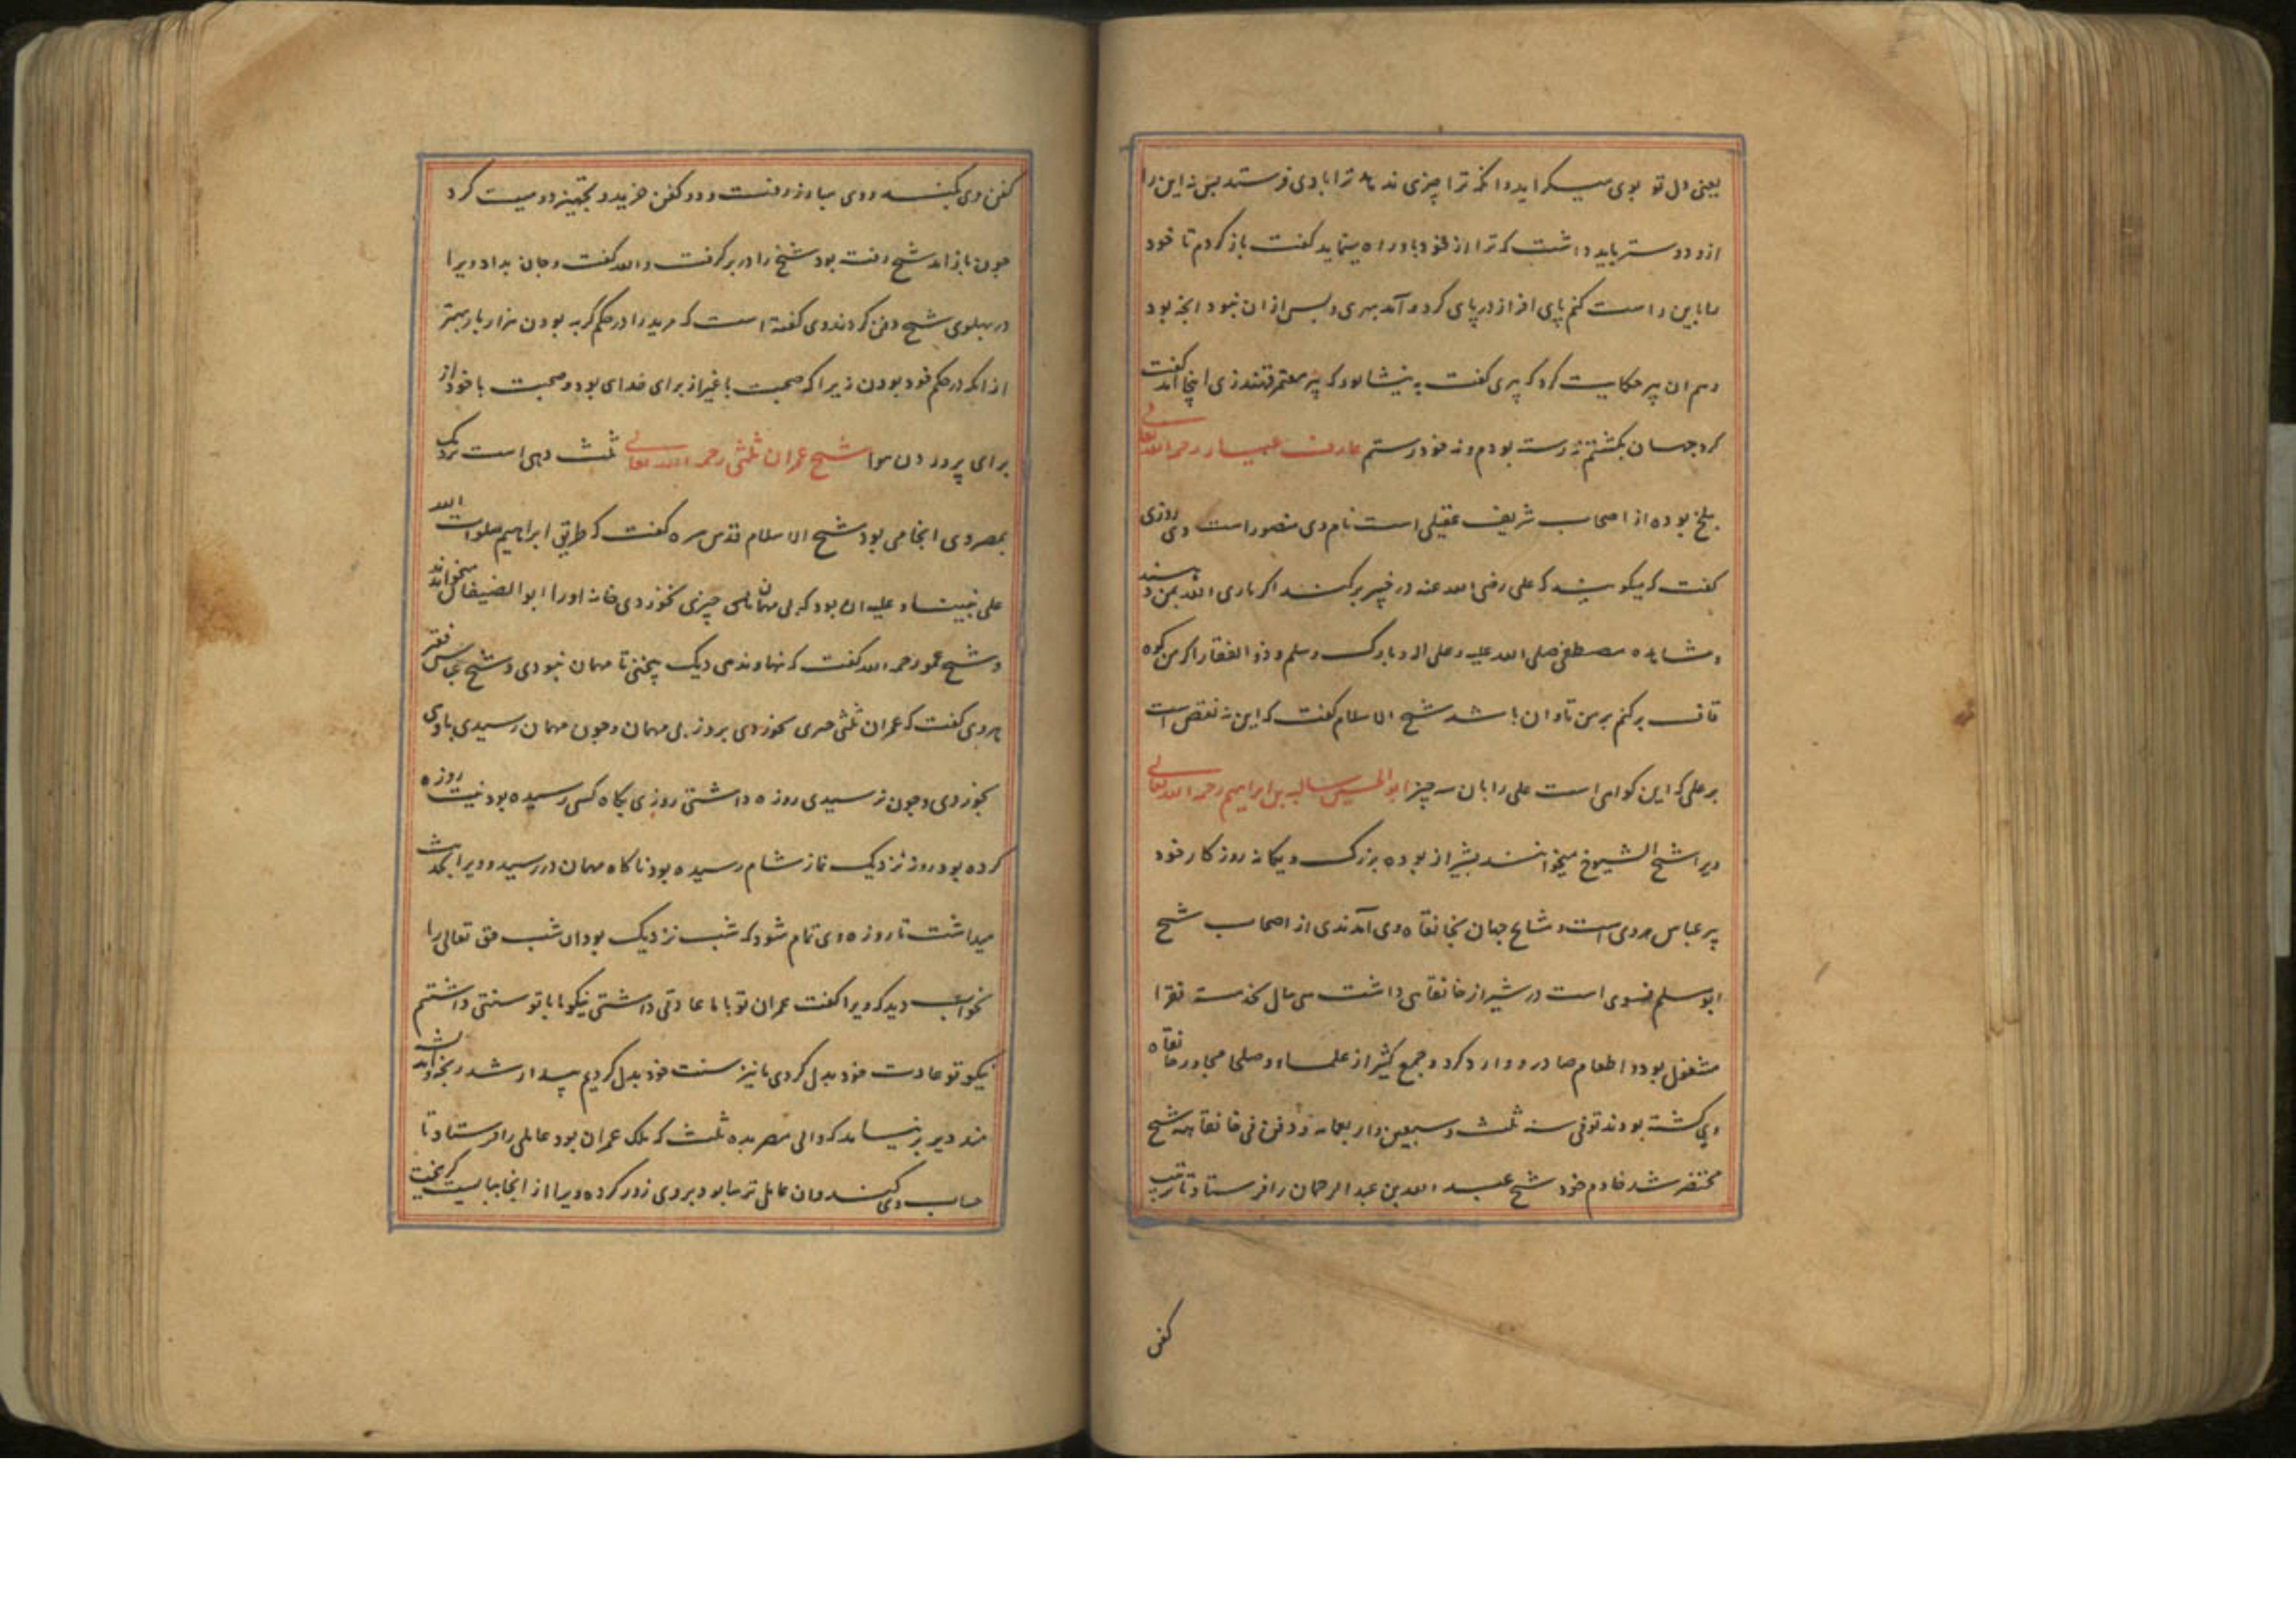 یعنی دل تو بوی میکراید وانکه ترا چیزی ندهد ترا بادی فرستد پس نه این را
ازو دوستر باید داشت که ترا از خود باو راه مینماید کفت باز کردم تا خود
را باین راست کنم پای افزار در پای کرد و آمد بهری و پس ازان نبود انچه بود
وهم ان پیر حکایت کرد که پیری کفت به نیشابور که پیر معتمر قهندزی اینجا آمد کفت
کرد جهان بکشتم نه رسته بودم و نه خود رستم عارف عیار رحمه الله تعالی
ببلخ بوده از اصحاب شریف عقیلی است نام وی منصور است وی روزی
کفت که میکویند که علی رضی الله عنه در خیبر برکند اکر یاری الله بمن دهند
و مشاهده مصطفی صلی الله علیه و علی اله و بارک وسلم و ذو الفقار اکر من کوه
قاف برکنم بر من تاوان باشد شیخ الاسلام کفت که این نه نقص است
بر علی که این کواهی است علی را بان سه چیز ابو الحسین سالبه بن ابراهیم رحمه الله تعالی
ویرا شیخ الشیوخ میخوانند بشیراز بوده بزرک و یکانه روزکار خود
پیر عباس هروی است و مشایخ جهان بخانقاه وی آمدندی از اصحاب شیخ
ابو مسلم فسوی است در شیراز خانقاهی داشت سی سال بخدمت فقرا
مشغول بود و اطعام صادر و وارد کرد و جمع کثیر از علما و صلحا مجاور خانقاه
وی کشته بودند توفی سنه ثلث و سبعین و اربعمائه و دفن فی خانقاهه شیخ
محتضر شد خادم خود شیخ عبد الله بن عبد الرحمان را فرستاد تا ترتیب
کفن
کفن وی بکند و وی ببازار رفت و دو کفن خرید و تجهیز دو میت کرد
چون باز امد شیخ رفته بود شیخ را در بر کرفت و الله کفت و جان بداد ویرا
در پهلوی شیخ دفن کردند وی کفته است که مرید را در حکم کربه بودن هزار بار بهتر
از انکه در حکم خود بودن زیرا که صحبت با غیر از برای خدای بود و صحبت با خود از
برای پروردن هوا شیخ عمران ثلثی رحمه الله تعالی ثلث دهی است نزدیک
بمصر وی انجا می بود شیخ الاسلام قدس سره کفت که طریق ابراهیم صلوات الله
علی نبینا و علیه ان بود که بی مهمانی چیزی نخوردی خانه او را ابو الضیفان میخوانند
و شیخ عمو رحمه الله کفت که نهاوندی دیک نپختی تا مهمان نبودی و شیخ عباس فقیر
هروی کفت که عمران ثلثی چیزی نخوردی بروز بی مهمان و چون مهمان رسیدی با وی
بخوردی و چون نرسیدی روزه داشتی روزی بکاه کسی رسیده بود نیت روزه
کرده بود روز نزدیک نماز شام رسیده بود ناکاه مهمان در رسید و ویرا بحدیث
میداشت تا روزه وی تمام شود که شب نزدیک بود ان شب حق تعالی را
بخواب دید که ویرا کفت عمران تو با ما عادتی داشتی نیکو ما با تو سنتی داشتیم
نیکو تو عادت خود بدل کردی ما نیز سنت خود بدل کردیم بیدار شد رنجور و اندیشه
مند دیر بر نیامد که والی مصر بده ثلث که ملک عمران بود عاملی را فرستاد تا
حساب وی کند و ان عامل ترسا بود بر وی زور کرد و ویرا از انجا ببایست کریخت